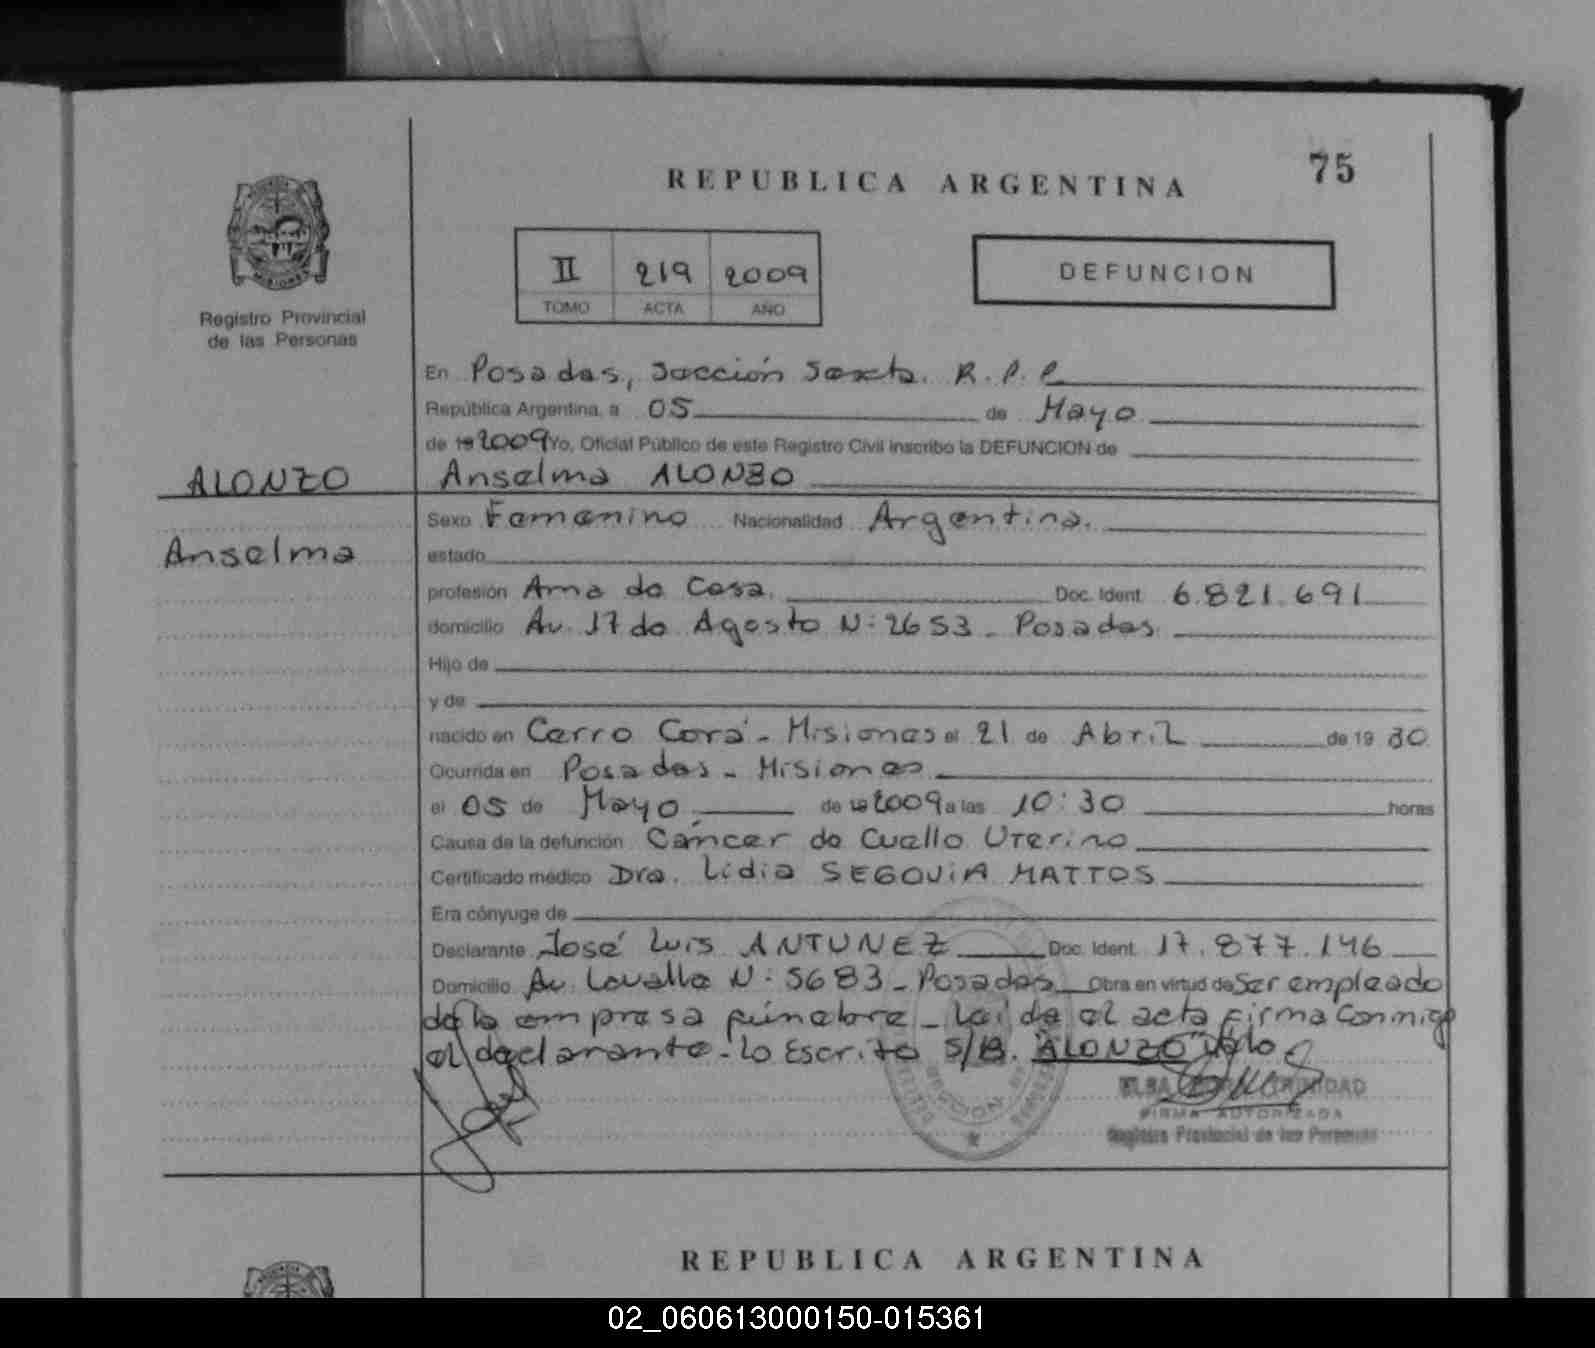 75
REPUBLICA ARGENTINA
II 219 2009
TOMO ACTA AÑO
DEFUNCION
MISIONES
Registro Provincial
de las Personas
En Posadas, Sección Sexta. R.P.P.
República Argentina, a 05 de Mayo
de 19 2009 Yo, Oficial Público de este Registro Civil inscribo la DEFUNCION de
ALONZO
Anselma ALONZO
Sexo Femenino Nacionalidad Argentina.
Anselma
estado
profesión Ama de Casa. Doc. Ident. 6.821.691
domicilio Av. 17 de Agosto N: 2653 - Posadas.
Hijo de
y de
nacido en Cerro Corá - Misiones el 21 de Abril de 19 30
Ocurrida en Posadas - Misiones
el 05 de Mayo de 19 2009 a las 10:30 horas
Causa de la defunción Cáncer de Cuello Uterino
Certificado médico Dra. Lidia SEGOVIA MATTOS
Era cónyuge de
Declarante José Luis ANTUNEZ Doc. Ident. 17.877.146
Domicilio Av. Lavalle N: 5683 - Posadas Obra en virtud de Ser empleado
de la empresa fúnebre - Leída el acta firma Conmigo
el declarante - Lo Escrito S/B. "ALONZO" Vale
FIRMA AUTORIZADA
Registro Provincial de las Personas
REPUBLICA ARGENTINA
02_060613000150-015361